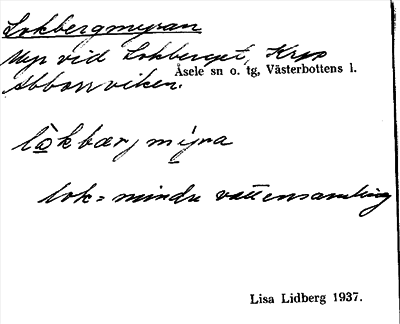 Lokbergmyran
Myr vid Lokberget, Krp
Åsele sn o. tg, Västerbottens l.
Abborrviken.
lòkbærjmýra
lok = mindre vattensamling
Lisa Lidberg 1937.